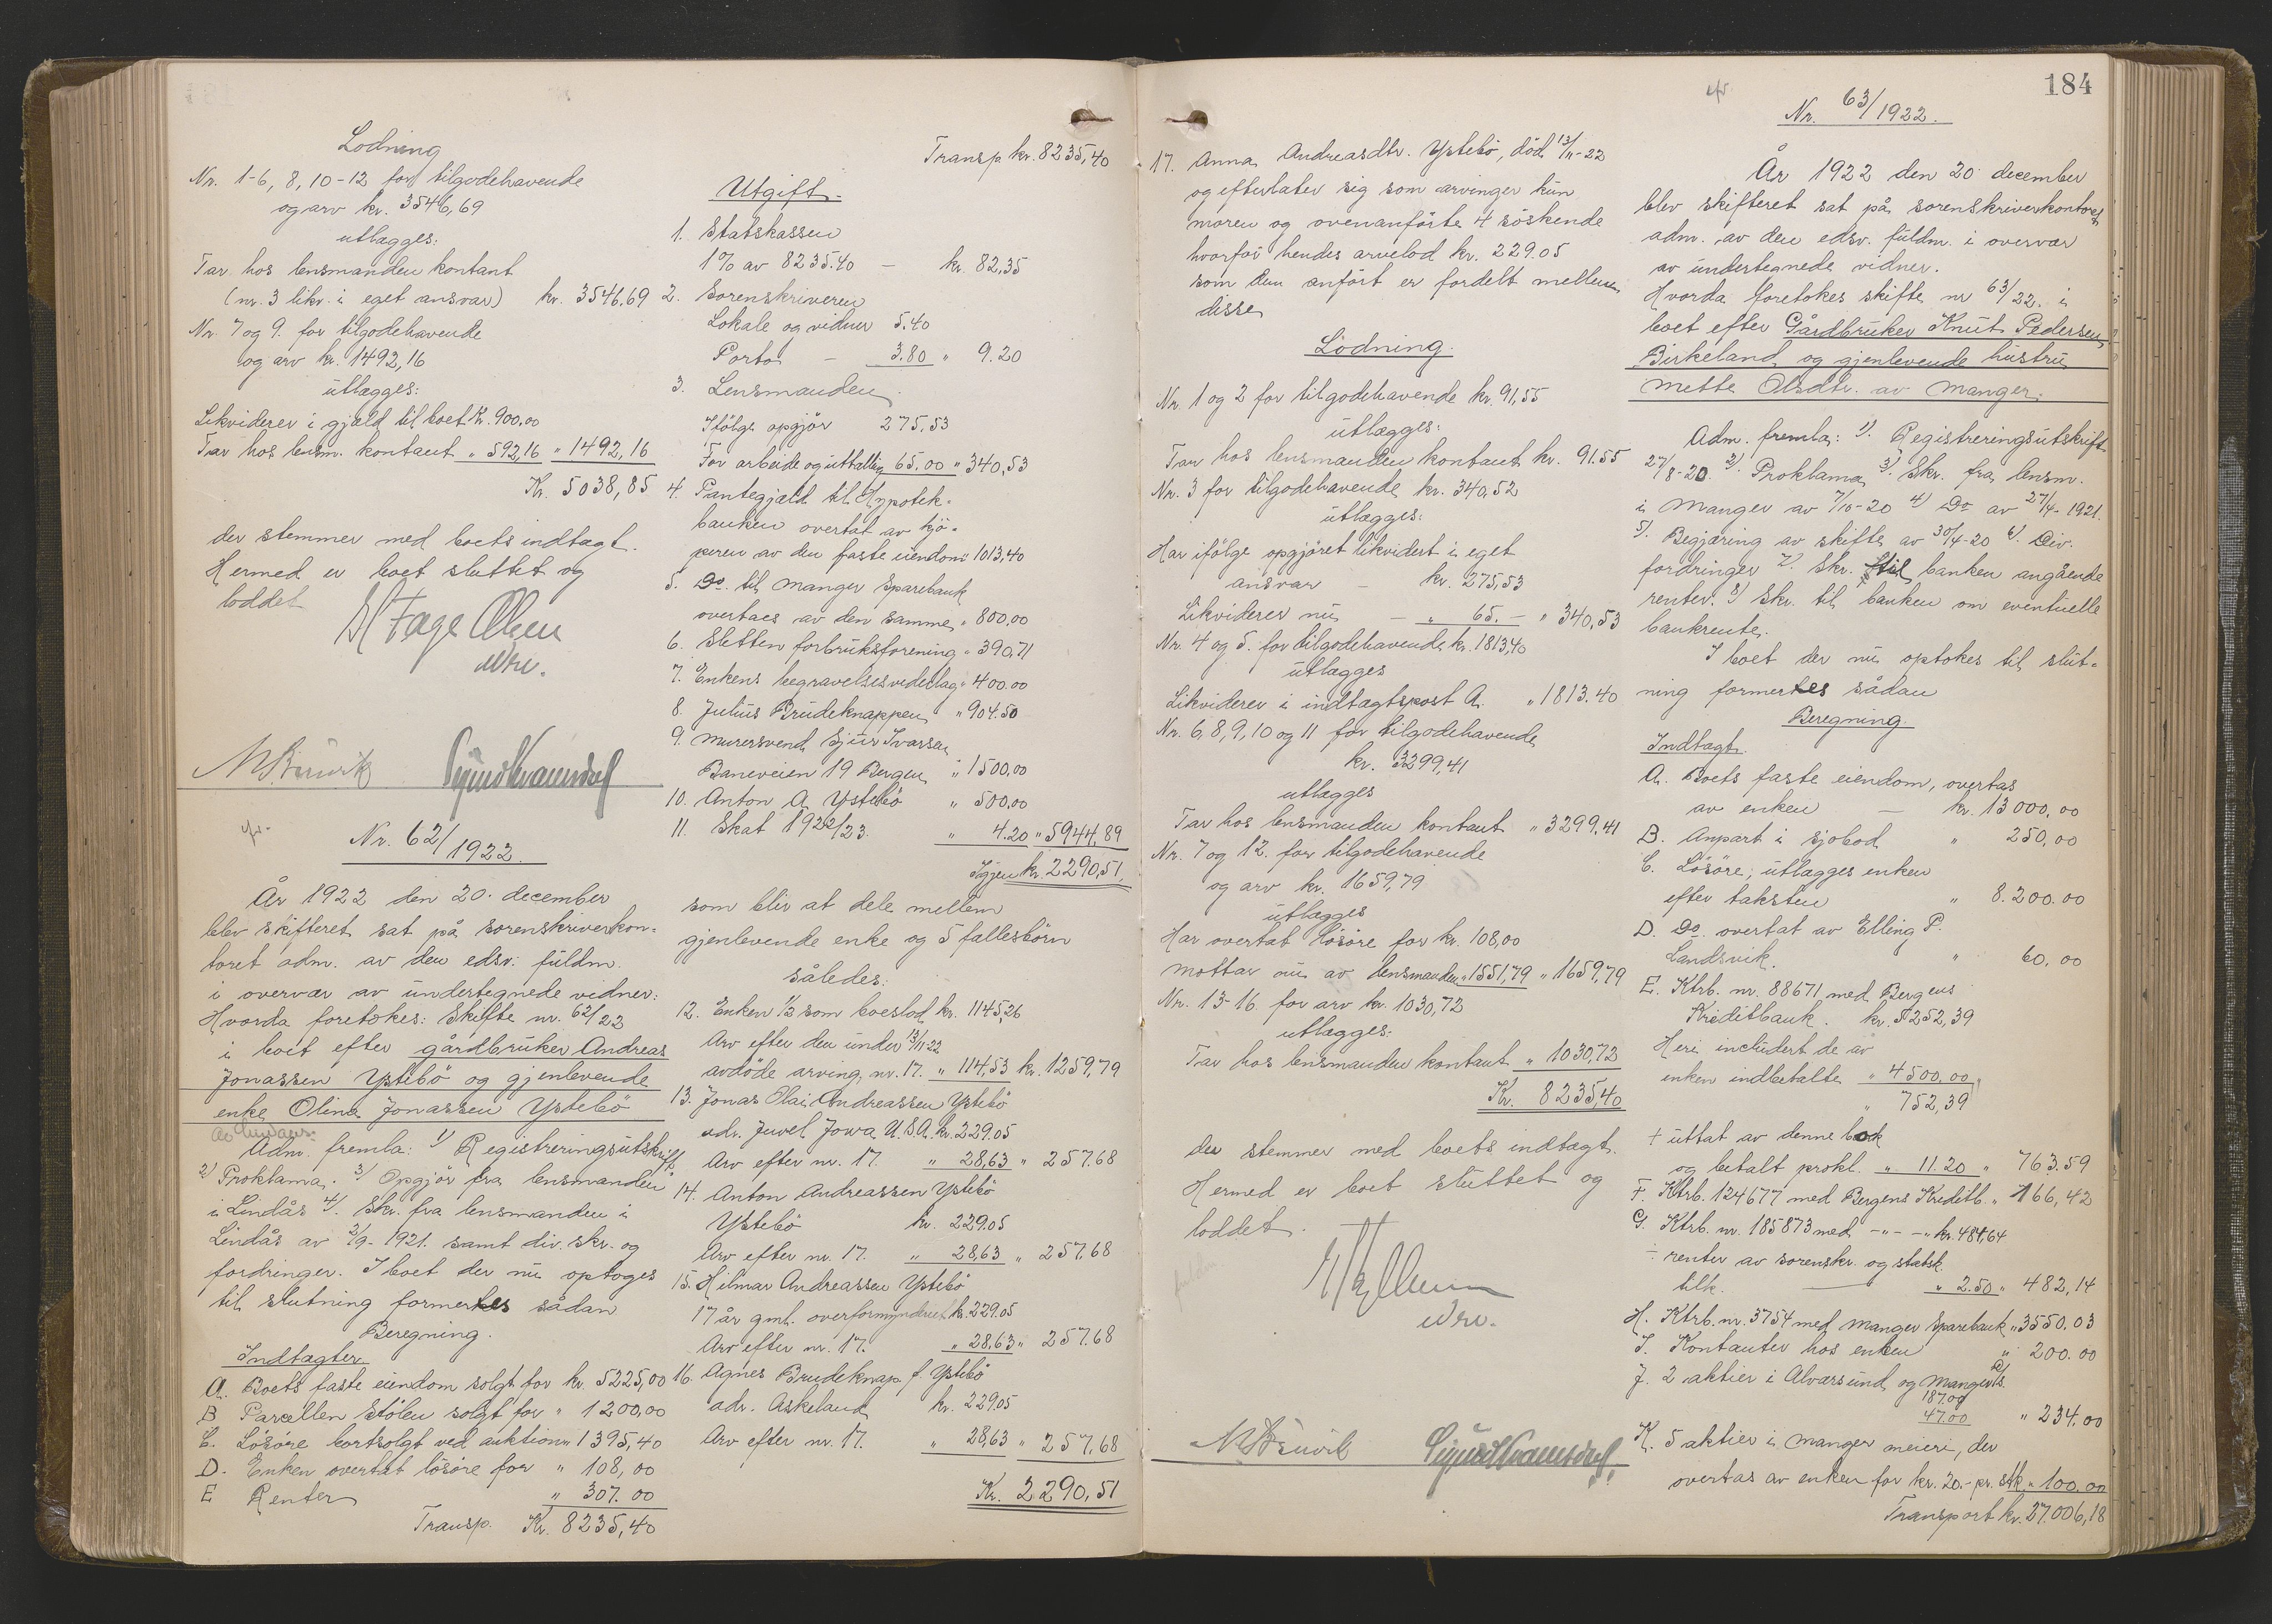 Lodning
Nr. 1-6, 8, 10-12 for tilgodehavende
og arv kr. 3546,69
utlægges:
Tar hos lensmanden kontant
(nr. 3 likv. i eget ansvar) kr. 3546.69
Nr. 7 og 9. for tilgodehavende
og arv kr. 1492,16
utlægges:
Likviderer i gjæld til boet kr. 900.00
Tar hos lensm. kontant " 592,16 " 1492,16
Kr. 5038,85
der stemmer med boets indtægt.
Hermed er boet sluttet og
loddet
Nr. 62/1922.
År 1922 den 20. december
blev skifteret sat på sorenskriverkon-
toret adm. av den edsv. fuldm.
i overvær av undertegnede vidner:
Hvorda foretokes: Skifte nr. 62/22
i boet efter gårdbruker Andreas
Jonassen Ystebö og gjenlevende
enke Olina Jonassen Ystebö
av Lindaas.
Adm. fremla: 1) Registreringsutskrift.
2) Proklama. 3) Opgjör fra lensmanden
i Lindås 4). Skr. fra lensmanden i
Lindås av 2/9-1921. samt div. skr. og
fordringer. I boet der nu optoges
til slutning formerkes sådan
Beregning.
Indtægter
A. Boets faste eiendom solgt for kr. 5225,00
B Parcellen Stölen solgt for " 1200,00
C. Lösöre bortsolgt ved auktion " 1395,40
D. Enken overtat lösöre for " 108,00
E Renter " 307.00
Transp. Kr. 8235,40
Transp. kr. 8235,40
Utgift.
1. Statskassen
1% av 8235.40 — kr. 82,35
2. Sorenskriveren
Lokale og vidner 5.40
Porto — 3.80 " 9.20
3. Lensmanden.
Ifölge opgjör 275,53
For arbeide og uttællig 65.00 " 340,53
4. Pantegjæld til Hypotek-
banken overtat av kjö-
peren av den faste eiendom " 1013,40
5. Do. til Manger Sparebank
overtaes av den samme " 800,00
6. Sletten forbruksforening " 390,71
7. Enkens begravelsesvederlag " 400.00
8. Julius Brudeknappen " 904.50
9. Murersvend Sjur Ivarsen
Baneveien 19 Bergen " 1500,00
10. Anton A. Ystebö " 500,00
11. Skat 1922/23. " 4.20 " 5944,89
Igjen kr. 2290,51.
som blir at dele mellem
gjenlevende enke og 5 fællesbörn
således:
12. Enken 1/2 som boeslod kr. 1145,26
Arv efter den under 13/11-22
avdöde arving, nr. 17. " 114,53 kr. 1259,79
13. Jonas Olai Andreassen Ystebö
adr. Juvel Jowa U.S.A. kr. 229.05
Arv efter nr. 17. " 28,63 " 257.68
14. Anton Andreassen Ystebö
Ystebö kr. 229.05
Arv efter nr. 17. " 28,63 " 257.68
15. Hilmar Andreassen Ystebö
17 år gml. overformynderiet kr. 229.05
Arv efter nr. 17. " 28.63 " 257.68
16. Agnes Brudeknap f. Ystebö
adr. Askeland kr. 229.05
Arv efter nr. 17. " 28,63 " 257,68
Kr. 2290,51
17. Anna Andreasdtr. Ystebö, död 13/11-22
og efterlater sig som arvinger kun
moren og ovenanförte 4 söskende
hvorfor hendes arvelod kr. 229.05
som den anfört er fordelt mellem
disse
Lodning.
Nr. 1 og 2 for tilgodehavende kr. 91,55
utlægges:
Tar hos lensmanden kontant kr. 91.55
Nr. 3 for tilgodehavende kr. 340,52
utlægges:
Har ifölge opgjöret likvidert i eget
ansvar — kr. 275,53
Likviderer nu — " 65.— " 340,53
Nr. 4 og 5. for tilgodehavende kr. 1813,40
utlægges
Likviderer i indtægtspost A. " 1813.40
Nr. 6, 8, 9, 10 og 11 for tilgodehavende
kr. 3299,41
utlægges
Tar hos lensmanden kontant " 3299,41
Nr. 7 og 12. for tilgodehavende
og arv kr. 1659,79
utlægges
Har overtat lösöre for kr. 108,00
mottar nu av lensmanden " 1551,79 " 1659,79
Nr. 13-16. for arv kr. 1030,72
utlægges:
Tar hos lensmanden kontant " 1030,72
Kr. 8235,40
der stemmer med boets indtægt.
Hermed er boet sluttet og
loddet.
184
Nr. 63/1922.
År 1922 den 20 december
blev skifteret sat på sorenskriverkontoret
adm. av den edsv. fuldm. i overvær
av undertegnede vidner.
Hvorda foretokes skifte nr 63/22. i
boet efter Gårdbruker Knut Pedersen
Birkeland og gjenlevende hustru
Mette Olsdtr. av Manger.
Adm. fremla: 1). Registreringsutskrift
27/8-20 2). Proklama 3). Skr. fra lensm.
i Manger av 7/10-20 4) Do av 27/4-1921.
5). Begjæring av skifte av 30/4-20 6). Div.
fordringer 7). Skr. til banken angående
renter. 8) Skr. til banken om eventuelle
bankrente.
I boet der nu optokes til slut-
ning formerkes sådan
Beregning.
Indtægt.
A. Boets faste eiendom, overtas
av enken — kr. 13000,00
B. Anpart i sjobod " 250,00
C. Lösöre; utlægges enken
efter taksten " 8.200.00
D. Do. overtat av Elling P.
Landsvik. " 60.00
E. Ktrb. nr. 88671 med Bergens
Kreditbank. kr. 5252,39
Heri includert de av
enken indbetalte " 4500.00
" 752,39
+ uttat av denne bok
og betalt prokl. " 11.20 " 763.59
F. Ktrb. 124677 med Bergens Kreditb. " 166,42
G. Ktrb. nr. 185873 med -"- -" kr. 484,64
÷ renter av sorenskr. og statsk.
tilk. — " 2.50 " 482,14
H. Ktrb. nr. 3754 med Manger Sparebank " 3550.03
I. Kontanter hos enken " 200.00
J. 2 aktier i Alvarsund og Manger Ds.
187.00
47.00 " 234.00
K. 5 aktier i Manger meieri, der
overtas av enken for kr. 20.- pr. stk. " 100.00
Transport kr. 27.006,18